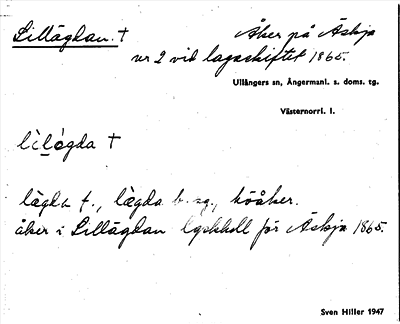 Lillägdan. † Åker på Äskja
nr 2 vid lagaskiftet 1865.
Ullångers sn, Ångermanl. s. doms. tg.
Västernorrl. l.
lìlǫ́gda †
lägda f., lægda b. sg., höåker.
åker i Lillägdan för Äskja 1865.
Sven Hiller 1947